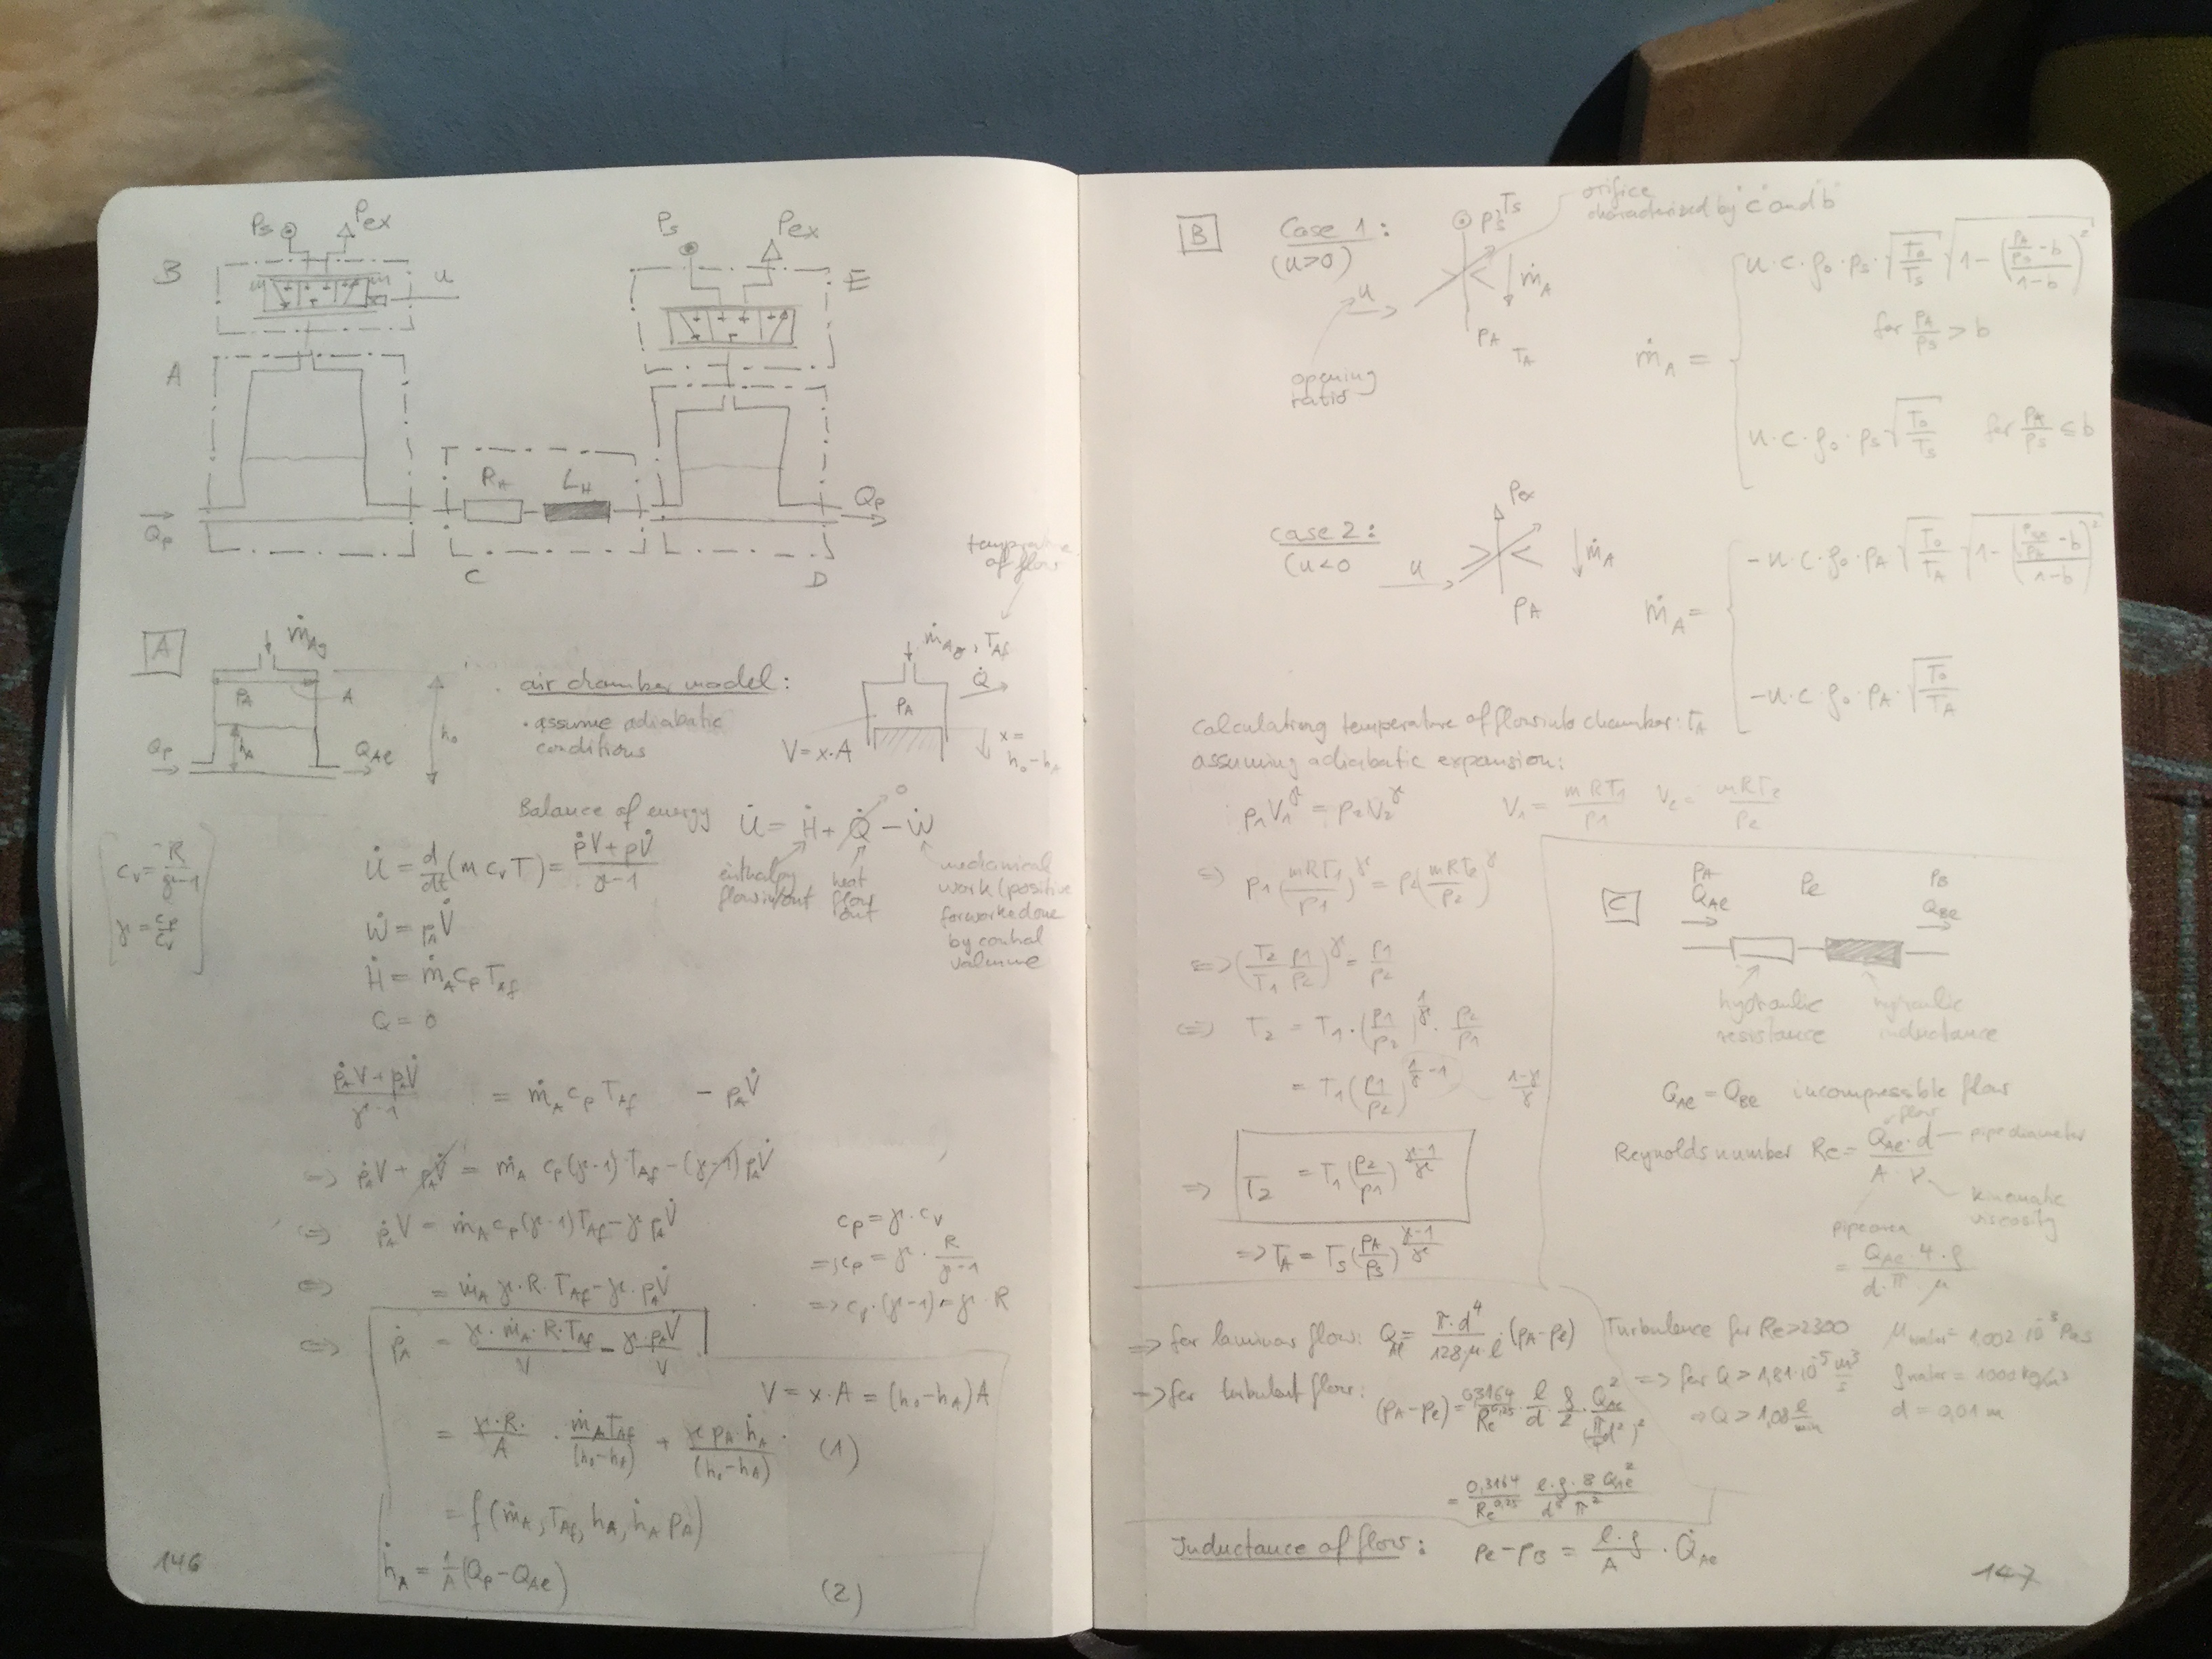 Ps Pex
B
u
A
Qp
Ps Pex
E
RH LH
Qp
C
D
A
ṁAg
PA A
hA
h₀
Qp QAe
air chamber model:
· assume adiabatic
conditions
temperature
of flow
ṁAg, TAf
Q̇
PA
V = x·A
x =
h₀-hA
Balance of energy U̇ = Ḣ + Q̇ - Ẇ
0
enthalpy
flow in/out
heat
flow
out
mechanical
work (positive
for work done
by control
volumme
cv = R/(γ-1)
γ = cp/cv
U̇ = d/dt (m cv T) = (ṗV + pV̇)/(γ-1)
Ẇ = pA V̇
Ḣ = ṁA cp TAf
Q = 0
(ṗA V + pA V̇)/(γ-1) = ṁA cp TAf - pA V̇
=> ṗA V + pA V̇ = ṁA cp (γ-1) TAf - (γ-1) pA V̇
<=> ṗA V = ṁA cp (γ-1) TAf - γ pA V̇
<=> = ṁA γ·R·TAf - γ·pA V̇
cp = γ·cv
=> cp = γ · R/(γ-1)
=> cp·(γ-1) = γ·R
<=> ṗA = (γ·ṁA·R·TAf)/V - (γ·pA V̇)/V
V = x·A = (h₀-hA) A
= (γ·R·)/A · (ṁA TAf)/(h₀-hA) + (γ pA·ḣA)/(h₀-hA) (1)
= f (ṁA, TAf, hA, ḣA pA)
ḣA = 1/A (Qp - QAe) (2)
146
B
Case 1:
(u>0)
u
opening
ratio
ps, Ts
orifice
characterized by "c" and "b"
ṁA
PA TA
ṁA =
u·c·ρ₀·ps·√(T₀/Ts) √(1-((pA/ps - b)/(1-b))²)
for pA/ps > b
u·c·ρ₀·ps √(T₀/Ts) for pA/ps ≤ b
case 2:
(u<0
u
Pex
ṁA
PA
ṁA =
-u·c·ρ₀·pA √(T₀/TA) √(1-((pex/pA - b)/(1-b))²)
-u·c·ρ₀·pA·√(T₀/TA)
Calculationg temperature of flow into chamber: TA
assuming adiabatic expansion:
p₁V₁^γ = p₂V₂^γ V₁ = mRT₁/p₁ V₂ = mRT₂/p₂
=> p₁ (mRT₁/p₁)^γ = p₂ (mRT₂/p₂)^γ
<=> (T₂/T₁ p₁/p₂)^γ = p₁/p₂
<=> T₂ = T₁·(p₁/p₂)^(1/γ) · p₂/p₁
= T₁ (p₁/p₂)^(1/γ - 1) (1-γ)/γ
=> T₂ = T₁ (p₂/p₁)^((γ-1)/γ)
=> TA = Ts (pA/ps)^((γ-1)/γ)
C
PA
QAe
Pe
PB
QBe
hydraulic
resistance
hydraulic
inductance
QAe = QBe incompressible flow
flow
Reynolds number Re = (QAe·d)/(A·ν) pipe diameter
kinematic
viscosity
pipe area
= (QAe·4·ρ)/(d·π·μ)
=> for laminar flow: QAe = (π·d⁴)/(128μ·l)·(pA-pe)
Turbulence for Re>2300
μwater = 1,002 10⁻³ Pa s
=> for turbulent flow: (pA-pe) = 0,3164/Re^0,25 · l/d · ρ/2 · QAe²/(π/4 d²)²
=> for Q > 1,81·10⁻⁵ m³/s
ρwater = 1000 kg/m³
=> Q > 1,08 l/min
d = 0,01 m
= 0,3164/Re^0,25 (l·ρ·8 QAe²)/(d⁵ π²)
Inductance of flow: pe-pB = (l·ρ)/A · Q̇Ae
147